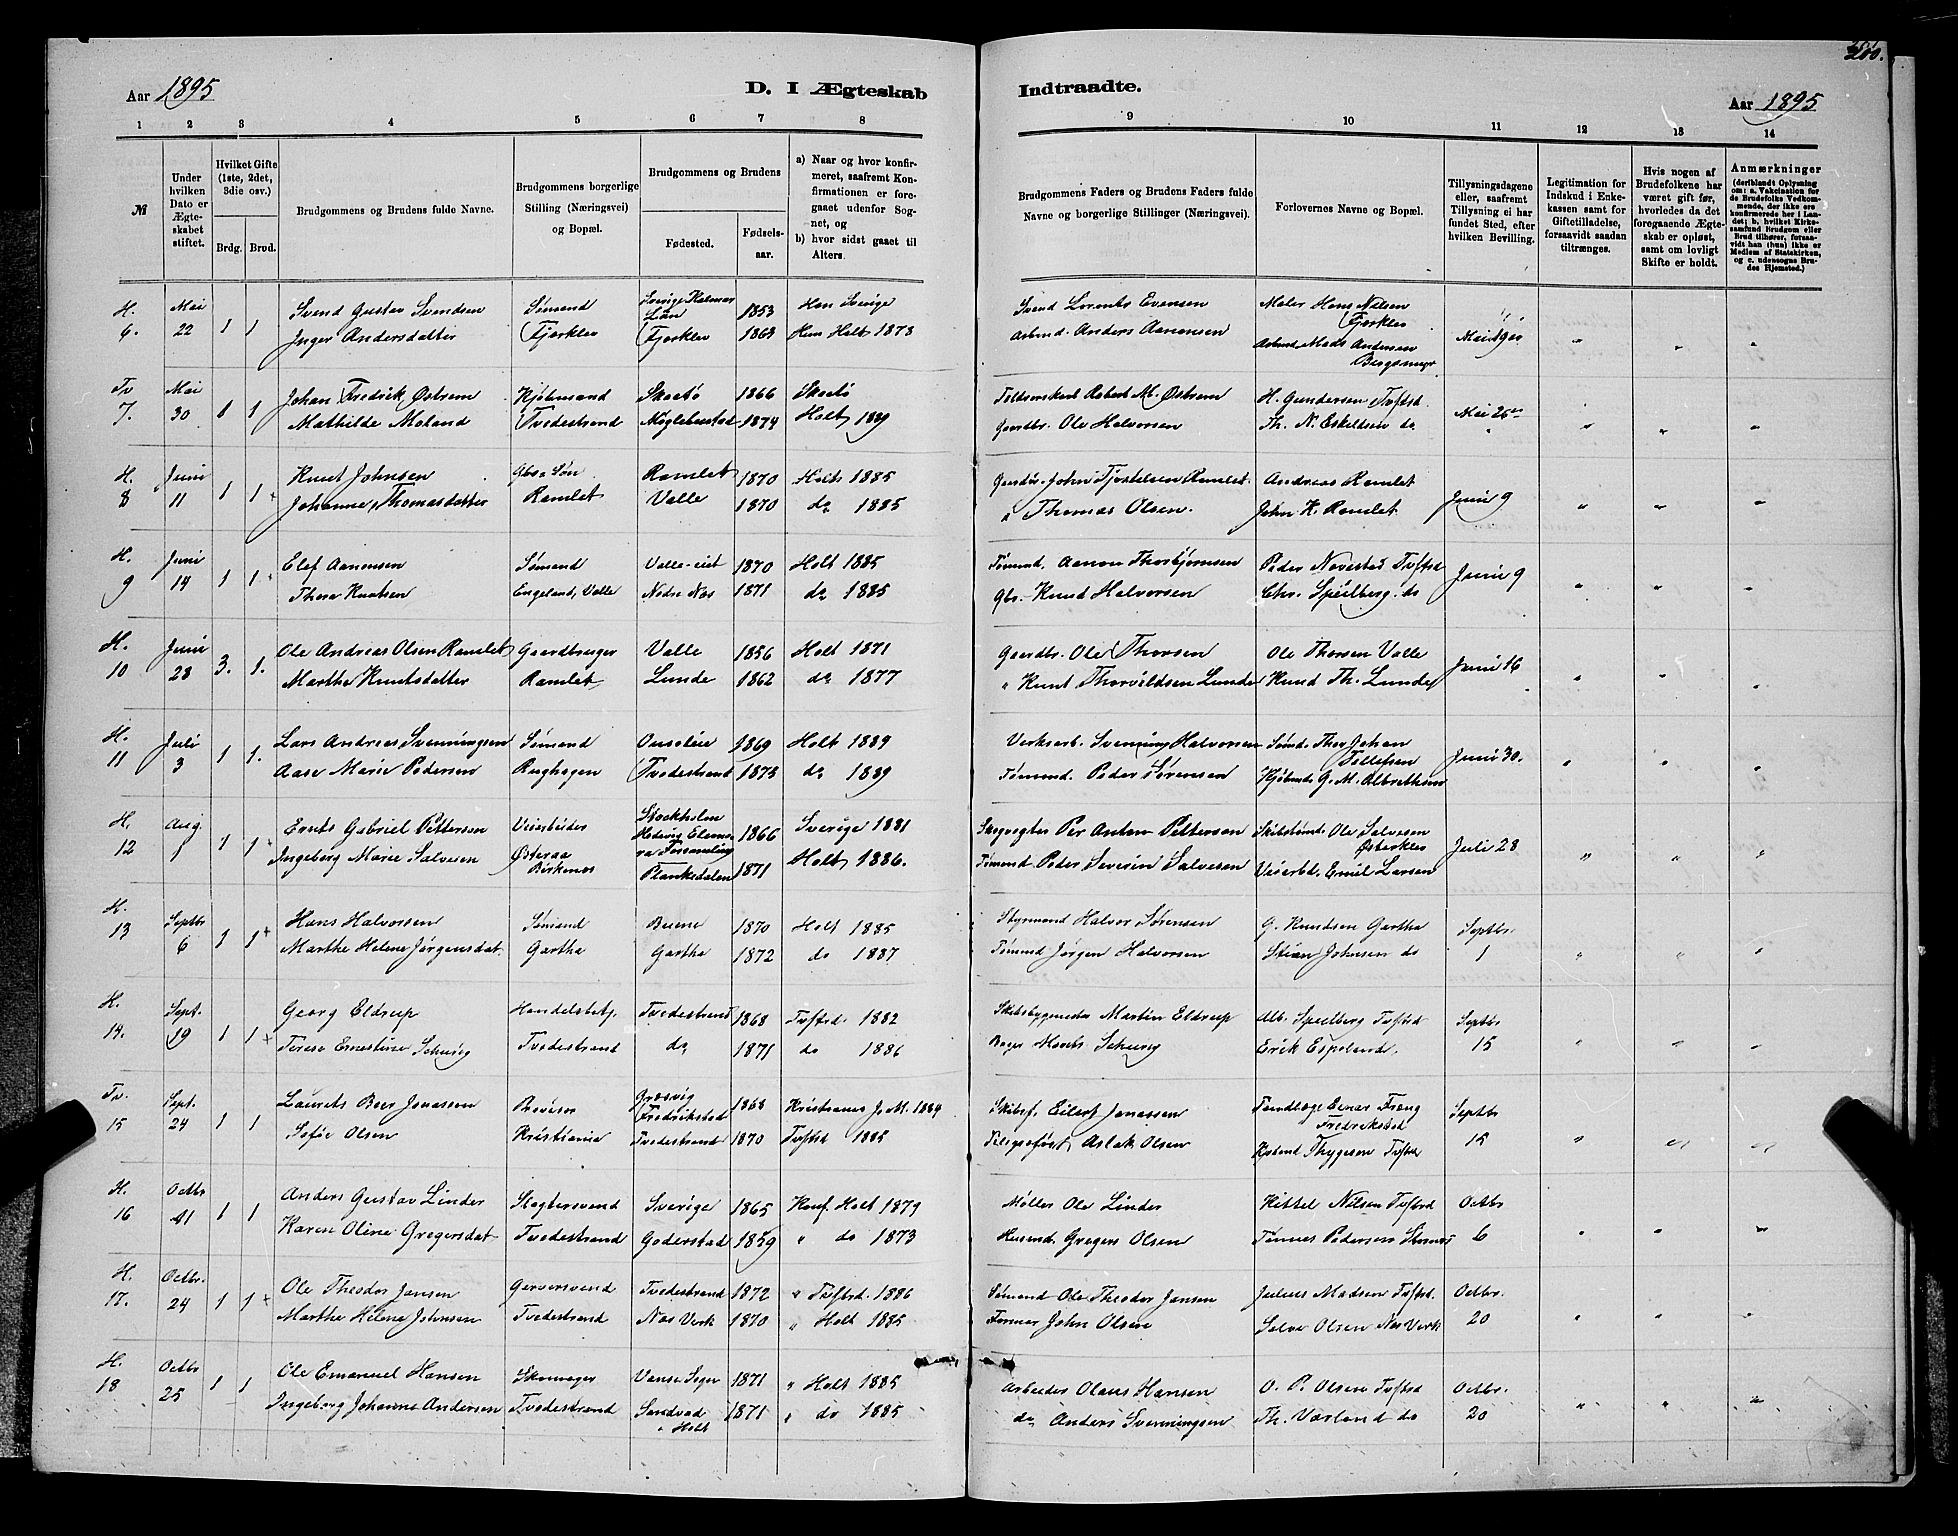 200.
Aar 1895
D. I Ægteskab
Indtraadte.
Aar 1895
1 2 3 4 5 6 7 8
9 10 11 12 13 14
№
Under hvilken Dato er Ægteskabet stiftet.
Hvilket Gifte (1ste, 2det, 3die osv.)
Brdg. Brud.
Brudgommens og Brudens fulde Navne.
Brudgommens borgerlige Stilling (Næringsvei) og Bopæl.
Brudgommens og Brudens
Fødested.
Fødselsaar.
a) Naar og hvor konfirmeret, saafremt Konfirmationen er foregaaet udenfor Sognet, og
b) hvor sidst gaaet til Alters.
Brudgommens Faders og Brudens Faders fulde Navne og borgerlige Stillinger (Næringsvei).
Forlovernes Navne og Bopæl.
Tillysningsdagene eller, saafremt Tillysning ei har fundet Sted, efter hvilken Bevilling.
Legitimation for Indskud i Enkekassen samt for Giftetilladelse, forsaavidt saadan tiltrænges.
Hvis nogen af Brudefolkene har været gift før, hvorledes da det foregaaende Ægteskab er opløst, samt om lovligt Skifte er holdt.
Anmærkninger
(deriblandt Oplysning om: a. Vakcination for de Brudefolks Vedkommende, der ikke ere konfirmerede her i Landet; b, hvilket Kirkesamfund Brudgom eller Brud tilhører, forsaavidt han (hun) ikke er Medlem af Statskirken, og c. udensogns Brudes Hjemsted.)
H. Mai Svend Gustav Svendsen Sømand Sverige Kalmar Län 1853 Han Sverige Svend Lorents Evensen Maler Hans Nilsen Fjerklev
6. 22 1 1 Inger Andersdatter Fjerklev Fjerklev 1863 Hun Holt 1873 Arbmd. Anders Aanonsen Arbmd. Mads Andersen Mai
Tv Mai Johan Fredrik Østrem Kjøbmand Skaatø 1866 Skaatø Robert M. Østrem H. Gundersen Tvstrd.
7. 30 1 1 Mathilde Moland Tvedestrand 1874 Holt 1889 Gaardbr. Ole Halvorsen Th. N. Eskeldsen do Mai 26
H. Juni Knut Johnsen Gbr. Søn Ramlet 1870 Holt 1885 Gaardbr. John Tjostelsen Ramlet. Andreas Ramlet
8 11 1 1 Johanne Thomasdatter Ramlet Valle 1870 do 1885 " Thomas Olsen. John K. Ramlet. Juni 9
H. Juni Elef Aanonsen Sømand Valle-eiet 1870 Holt 1885 Tømmd. Aanon Thorbjørnsen Peder Naverstad Tvstrd
9 14 1 1 Thora Knutsen Engeland, Valle Nedre Næs 1871 do 1885 Gbr. Knud Halvorsen Chr. Speilberg. do Juni 9
H. Juni Ole Andreas Olsen Ramlet Gaardbruger Valle 1856 Holt 1871 Gaardbr. Ole Thorsen Ole Thorsen Valle
10 28 3. 1. Marthe Knutsdatter Ramlet Lunde 1862 do 1877 " Knut Thorvildsen Lunde Knud Th. Lunde Juni 16
H. Juli Lars Andreas Svenningsen Sømand 1869 Holt 1889 Verksarb. Svenning Halvorsen Sømd. Thor Johan Tellefsen
11 3 1 1. Aase Marie Pedersen Tvedestrand 1873 do 1889 Tømmd. Peder Sørensen Kjøbmd. G. M. Albrethsen Juni 30.
H. Aug. Ernts Gabriel Pettersen Veiarbeider Stockholm Hedvig Eleonora Forsamling 1866 Sverige 1881 Skogvogter Per Anton Petterson Skibstømd. Ole Salvesen Østerklev
12 1 1 1 Ingeborg Marie Salvesen Østeraa Birkenes Plankedalen 1871 Holt 1886. Tømmd. Peder Severin Salvesen Veiarbd. Emil Larsen Juli 28
H. Septbr Hans Halvorsen Sømand 1870 Holt 1885 Styrmand Halvor Sørensen G. Knudsen Gartha Septbr.
13 6 1 1 Marthe Helene Jørgensdat. Gartha Gartha 1872 do 1887 Tømmd Jørgen Halvorsen Stian Johnsen do 1
H. Sept. Georg Eldrup Handelsbetj. Tvedestrand 1868 Tvstrd. 1882 Skibsbygmester Martin Eldrup Alb. Speilberg Tvstrd Septbr
14. 19 1 1 Terese Ernestine Schurig Tvedestrand do 1871 do 1886 Bager Schurig Erik Espeland. 15
Tv. Sept. Laurits Beer Jonassen Provisor Græsvig Fredrikstad 1868 Kristianss. J. M. 1884 Skibsf. Eilert Jonassen Tandlæge Einar Fredrikstad Septbr
15 24 1 1 Sofie Olsen Kristiania Tvedestrand 1870 Tvstrd 1885 Aslak Olsen Thygesen Tvstrd 15
H. Octbr Anders Gustav Linder Slagtersvend Sverige 1865 Konf. Holt 1879 Møller Ole Linder Kittel Nilsen Tvstrd Octbr
16 11 1 1 Karen Oline Gregersdat Tvedestrand Goderstad 1859 " do 1873 Husmd. Gregers Olsen Tønnes Pedersen 6
H. Octbr. Ole Theodor Jansen Garversvend Tvedestrand 1872 " Tvstrd. 1886 Sømand Ole Theodor Jansen Julius Madsen Tvstrd. Octbr.
17. 24 1 1 Marthe Helene Johnsen Tvedestrand Næs Verk 1870 " Holt 1885 Former John Olsen Salve Olsen Næs Verk 20
H. Octbr Ole Emanuel Hansen Skomager 1871 " Holt 1885 Arbeider Olaus Hansen O. P. Olsen Tvstrd Octbr.
18 25 1 1 Ingeborg Johanne Andersen Tvedestrand Sandvad i Holt 1871 " do 1885 do Anders Svenningsen Th. Værland do 20